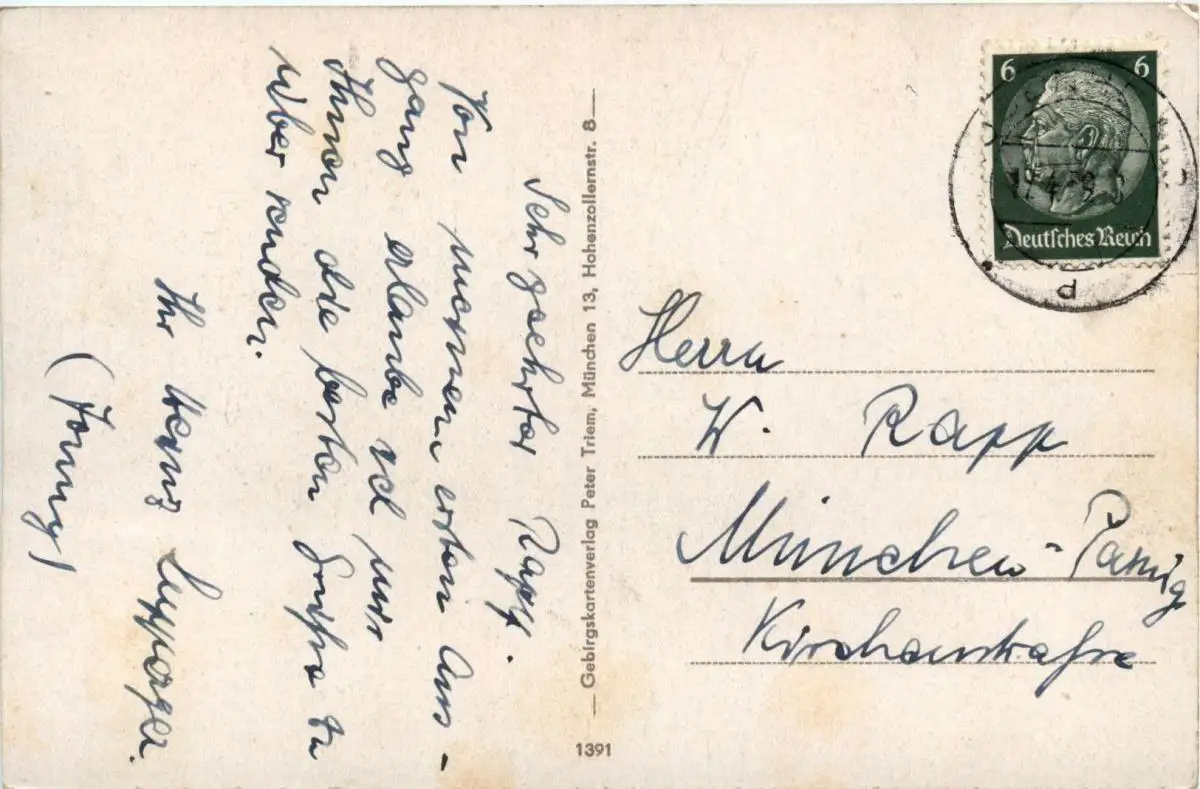 Sehr geehrter Rapp.
Von meinem ersten Aus-
gang erlaube ich mir
Ihnen die besten Grüße zu
übersenden.
Ihr Heinz
(Jonny)
Gebirgskartenverlag Peter Triem, München 13, Hohenzollernstr. 8
1391
6 6
Deutsches Reich
d
Herrn
W. Rapp
München-Pasing
Kirchenstraße